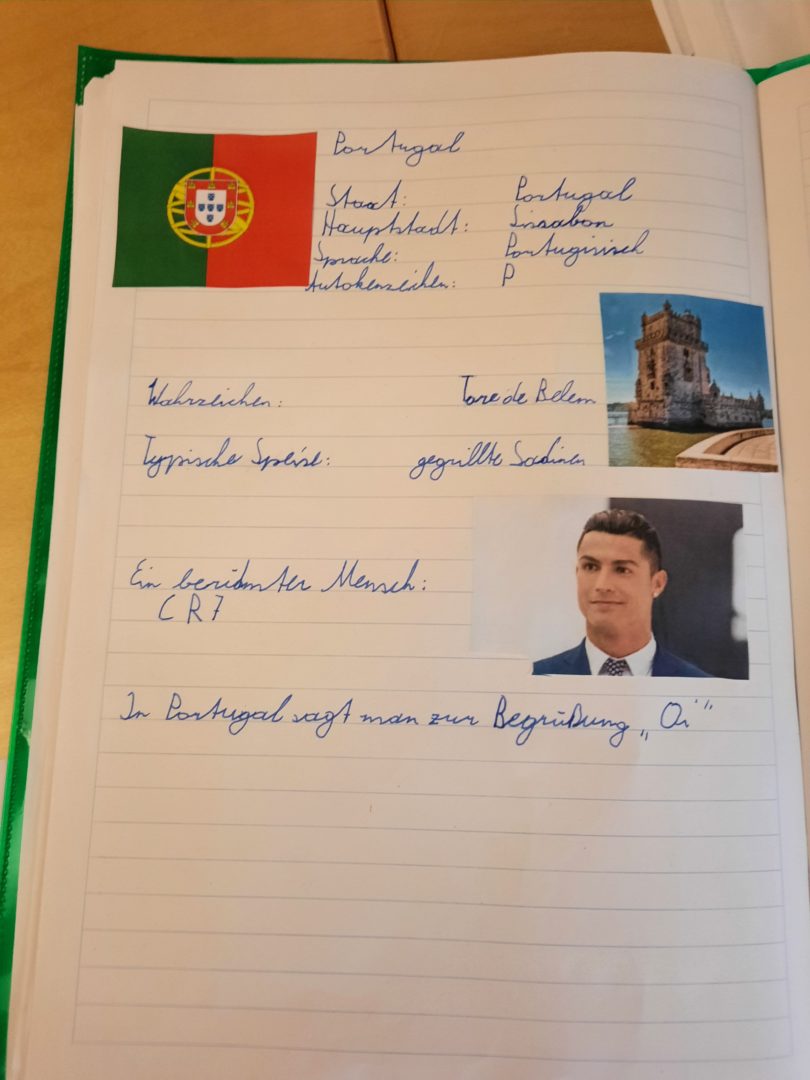 Portugal
Staat: Portugal
Hauptstadt: Lissabon
Sprache: Portugisisch
Autokenzeichen: P
Wahrzeichen: Tore de Belem
Typische Speise: gegrillte Sadinen
Ein berühmter Mensch:
CR7
In Portugal sagt man zur Begrüßung „Oi“